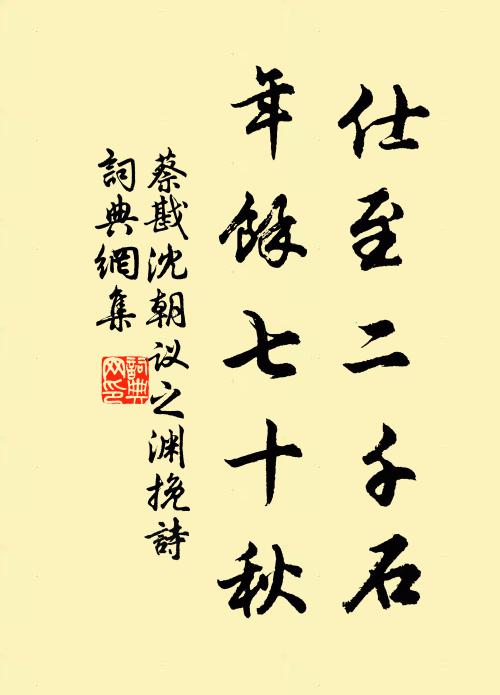 仕至二千石
年餘七十秋
蔡戡沈朝议之渊挽詩
詞典網集
詞典网印